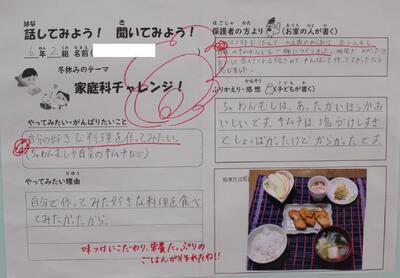 話してみよう! 聞いてみよう!
6年2組 名前
冬休みのテーマ
家庭科チャレンジ!
やってみたい・がんばりたいこと
自分の好きな料理を作ってみたい。
(ちゃわんむしや白菜のキムチなど)
やってみたい理由
自分で作ってみた好きな料理を食べ
てみたかったから。
味つけにこだわり、栄養たっぷりの
ごはんが作れたね!!
保護者の方より(お家の人が書く)
ふりかえり・感想(子どもが書く)
ちゃわんむしは、あったかいほうがお
いしいです。キムチは塩づけしすぎ
てしょっぱかったけど、からかったです。